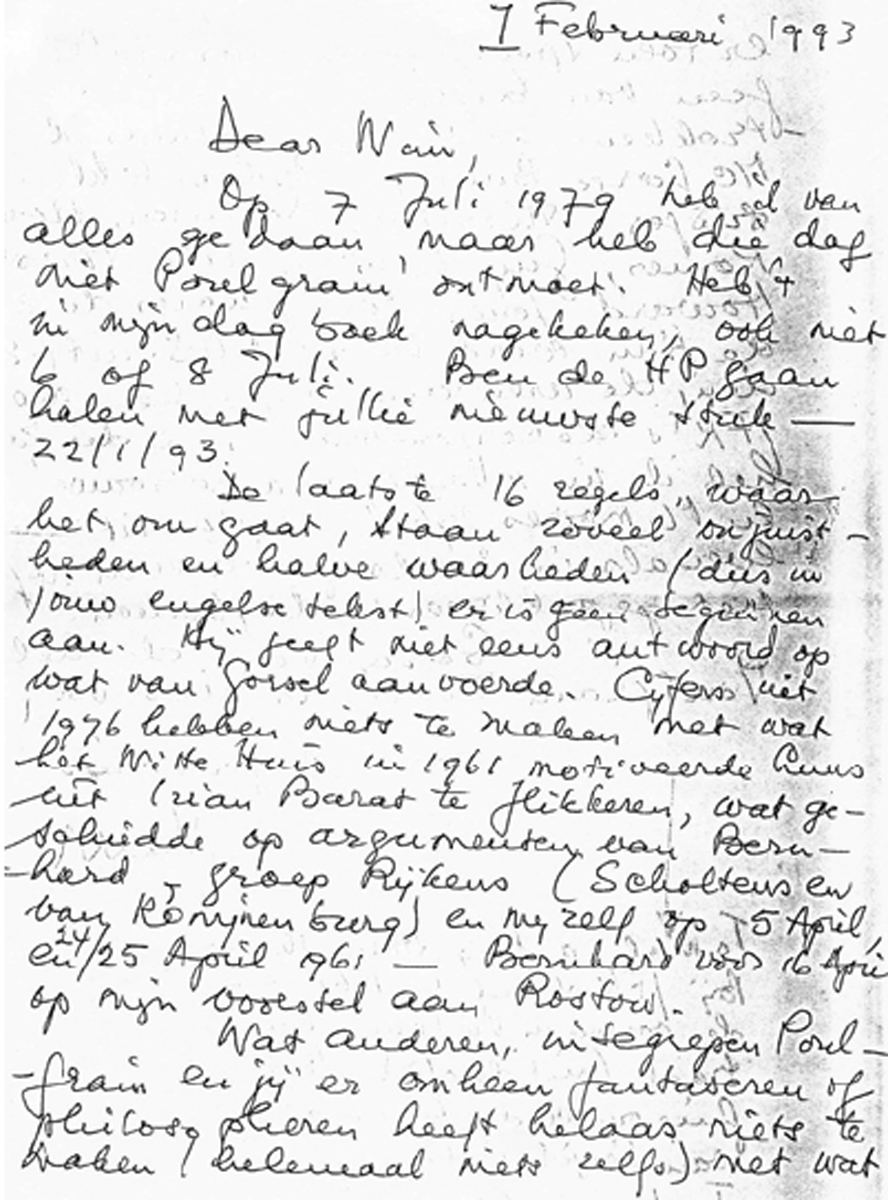 7 Februari 1993
Dear Wim,
Op 7 Juli 1979 heb ik van
alles gedaan maar heb die dag
niet Poulgrain ontmoet. Heb 't
in mijn dagboek nagekeken, ook niet
6 of 8 Juli. Ben de HP gaan
halen met jullie nieuwste stuk —
22/1/93.
De laatste 16 regels, waar
het om gaat, staan zoveel onjuist-
heden en halve waarheden (dus in
jouw engelse tekst) er is geen beginnen
aan. Hij geeft niet eens antwoord op
wat van Gorsel aanvoerde. Cijfers uit
1976 hebben niets te maken met wat
het Witte Huis in 1961 motiveerde Luns
uit Irian Barat te flikkeren, wat ge-
schiedde op argumenten van Bern-
hard, groep Rijkens (Scholtens en
van Konijnenburg) en mijzelf op 5 April,
en 24/25 April 1961 — Bernhard voor 16 April
op mijn voorstel aan Rostow.
Wat anderen, inbegrepen Poul-
grain en jij er omheen fantaseren of
philosopheren heeft helaas niets te
maken (helemaal niets zelfs) met wat